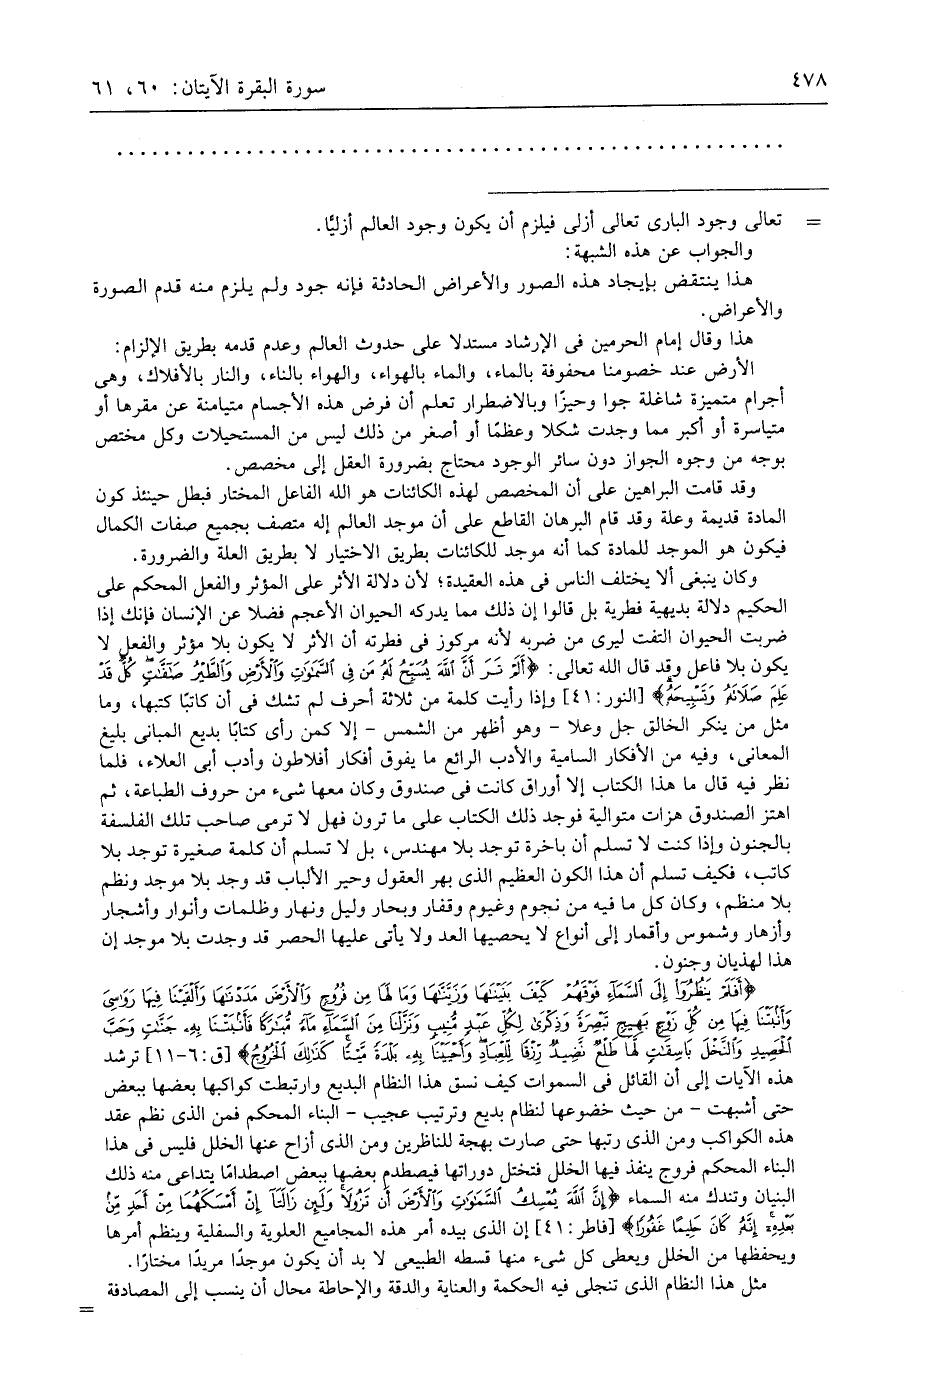 ٤٧٨
سورة البقرة الآيتان: ٦٠، ٦١
= تعالى وجود البارى تعالى أزلى فيلزم أن يكون وجود العالم أزليًا.
والجواب عن هذه الشبهة:
هذا ينتقض بإيجاد هذه الصور والأعراض الحادثة فإنه جود ولم يلزم منه قدم الصورة
والأعراض.
هذا وقال إمام الحرمين فى الإرشاد مستدلا على حدوث العالم وعدم قدمه بطريق الإلزام:
الأرض عند خصومنا محفوفة بالماء، والماء بالهواء، والهواء بالناء، والنار بالأفلاك، وهى
أجرام متميزة شاغلة جوا وحيزًا وبالاضطرار تعلم أن فرض هذه الأجسام متيامنة عن مقرها أو
متياسرة أو أكبر مما وجدت شكلا وعظمًا أو أصغر من ذلك ليس من المستحيلات وكل مختص
بوجه من وجوه الجواز دون سائر الوجود محتاج بضرورة العقل إلى مخصص.
وقد قامت البراهين على أن المخصص لهذه الكائنات هو الله الفاعل المختار فبطل حينئذ كون
المادة قديمة وعلة وقد قام البرهان القاطع على أن موجد العالم إله متصف بجميع صفات الكمال
فيكون هو الموجد للمادة كما أنه موجد للكائنات بطريق الاختيار لا بطريق العلة والضرورة.
وكان ينبغى ألا يختلف الناس فى هذه العقيدة؛ لأن دلالة الأثر على المؤثر والفعل المحكم على
الحكيم دلالة بديهية فطرية بل قالوا إن ذلك مما يدركه الحيوان الأعجم فضلا عن الإنسان فإنك إذا
ضربت الحيوان التفت ليرى من ضربه لأنه مركوز فى فطرته أن الأثر لا يكون بلا مؤثر والفعل لا
يكون بلا فاعل وقد قال الله تعالى: ﴿أَلَمْ تَرَ أَنَّ اللَّهَ يُسَبِّحُ لَهُ مَن فِى السَّمَٰوَٰتِ وَالْأَرْضِ وَالطَّيْرُ صَٰٓفَّٰتٍ كُلٌّ قَدْ
عَلِمَ صَلَاتَهُ وَتَسْبِيحَهُ﴾ [النور: ٤١] وإذا رأيت كلمة من ثلاثة أحرف لم تشك فى أن كاتبًا كتبها، وما
مثل من ينكر الخالق جل وعلا – وهو أظهر من الشمس – إلا كمن رأى كتابًا بديع المبانى بليغ
المعانى، وفيه من الأفكار السامية والأدب الرائع ما يفوق أفكار أفلاطون وأدب أبى العلاء، فلما
نظر فيه قال ما هذا الكتاب إلا أوراق كانت فى صندوق وكان معها شىء من حروف الطباعة، ثم
اهتز الصندوق هزات متوالية فوجد ذلك الكتاب على ما ترون فهل لا ترمى صاحب تلك الفلسفة
بالجنون وإذا كنت لا تسلم أن باخرة توجد بلا مهندس، بل لا تسلم أن كلمة صغيرة توجد بلا
كاتب، فكيف تسلم أن هذا الكون العظيم الذى بهر العقول وحير الألباب قد وجد بلا موجد ونظم
بلا منظم، وكان كل ما فيه من نجوم وغيوم وقفار وبحار وليل ونهار وظلمات وأنوار وأشجار
وأزهار وشموس وأقمار إلى أنواع لا يحصيها العد ولا يأتى عليها الحصر قد وجدت بلا موجد إن
هذا لهذيان وجنون.
﴿أَفَلَمْ يَنظُرُوٓا۟ إِلَى السَّمَآءِ فَوْقَهُمْ كَيْفَ بَنَيْنَٰهَا وَزَيَّنَّٰهَا وَمَا لَهَا مِن فُرُوجٍ وَالْأَرْضَ مَدَدْنَٰهَا وَأَلْقَيْنَا فِيهَا رَوَٰسِىَ
وَأَنۢبَتْنَا فِيهَا مِن كُلِّ زَوْجٍۭ بَهِيجٍ تَبْصِرَةً وَذِكْرَىٰ لِكُلِّ عَبْدٍ مُّنِيبٍ وَنَزَّلْنَا مِنَ السَّمَآءِ مَآءً مُّبَٰرَكًا فَأَنۢبَتْنَا بِهِۦ جَنَّٰتٍ وَحَبَّ
الْحَصِيدِ وَالنَّخْلَ بَاسِقَٰتٍ لَّهَا طَلْعٌ نَّضِيدٌ رِّزْقًا لِّلْعِبَادِ وَأَحْيَيْنَا بِهِۦ بَلْدَةً مَّيْتًا كَذَٰلِكَ الْخُرُوجُ﴾ [ق: ٦-١١] ترشد
هذه الآيات إلى أن القائل فى السموات كيف نسق هذا النظام البديع وارتبطت كواكبها بعضها ببعض
حتى أشبهت – من حيث خضوعها لنظام بديع وترتيب عجيب – البناء المحكم فمن الذى نظم عقد
هذه الكواكب ومن الذى رتبها حتى صارت بهجة للناظرين ومن الذى أزاح عنها الخلل فليس فى هذا
البناء المحكم فروج ينفذ فيها الخلل فتختل دوراتها فيصطدم بعضها ببعض اصطدامًا يتداعى منه ذلك
البنيان وتندك منه السماء ﴿إِنَّ اللَّهَ يُمْسِكُ السَّمَٰوَٰتِ وَالْأَرْضَ أَن تَزُولَا وَلَئِن زَالَتَآ إِنْ أَمْسَكَهُمَا مِنْ أَحَدٍ مِّنۢ
بَعْدِهِۦٓ إِنَّهُ كَانَ حَلِيمًا غَفُورًا﴾ [فاطر: ٤١] إن الذى بيده أمر هذه المجاميع العلوية والسفلية وينظم أمرها
ويحفظها من الخلل ويعطى كل شىء منها قسطه الطبيعى لا بد أن يكون موجدًا مريدًا مختارًا.
مثل هذا النظام الذى تتجلى فيه الحكمة والعناية والدقة والإحاطة محال أن ينسب إلى المصادفة
=